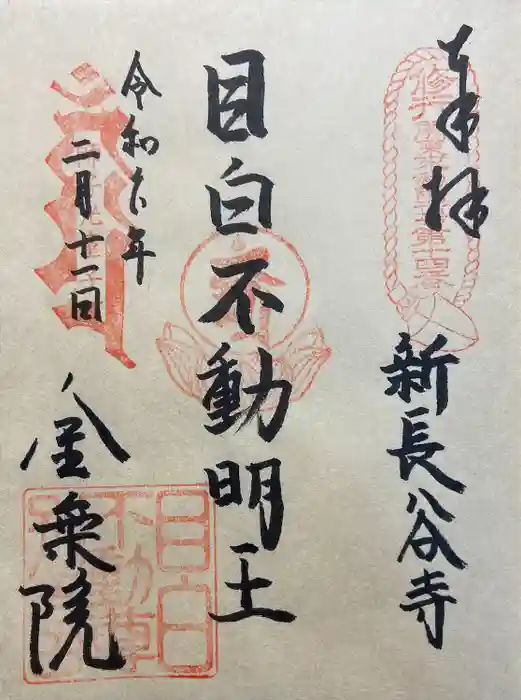 奉拝
新長谷寺
目白不動明王
令和 年
二月十一日
金乗院
第十四番
目白
不動